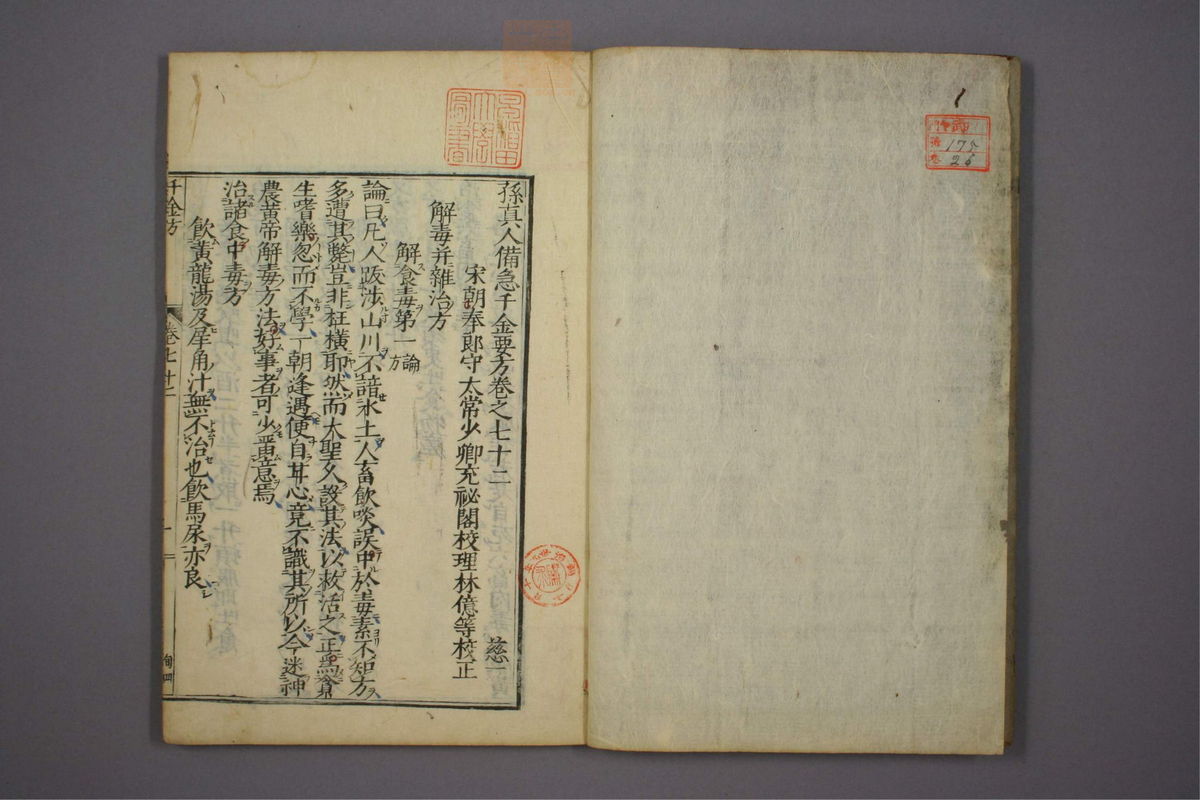 孫真人備急千金要方卷之七十二 慈一
宋朝奉郎守太常少卿充祕閣校理林億等校正
解毒并雜治方
解食毒第一 論 方
論曰凡人跋涉山川不諳水土人畜飲啖誤中於毒素不知方
多遭其斃豈非枉橫耶然而大聖久設其法以救活之正爲貪
生嗜樂忽而不學一朝逢遇便自甘心竟不識其所以今述神
農黄帝解毒方法好事者可少畱意焉
治諸食中毒方
飲黃龍湯及犀角汁無不治也飲馬尿亦良
千金方
卷七十二
一
175
26